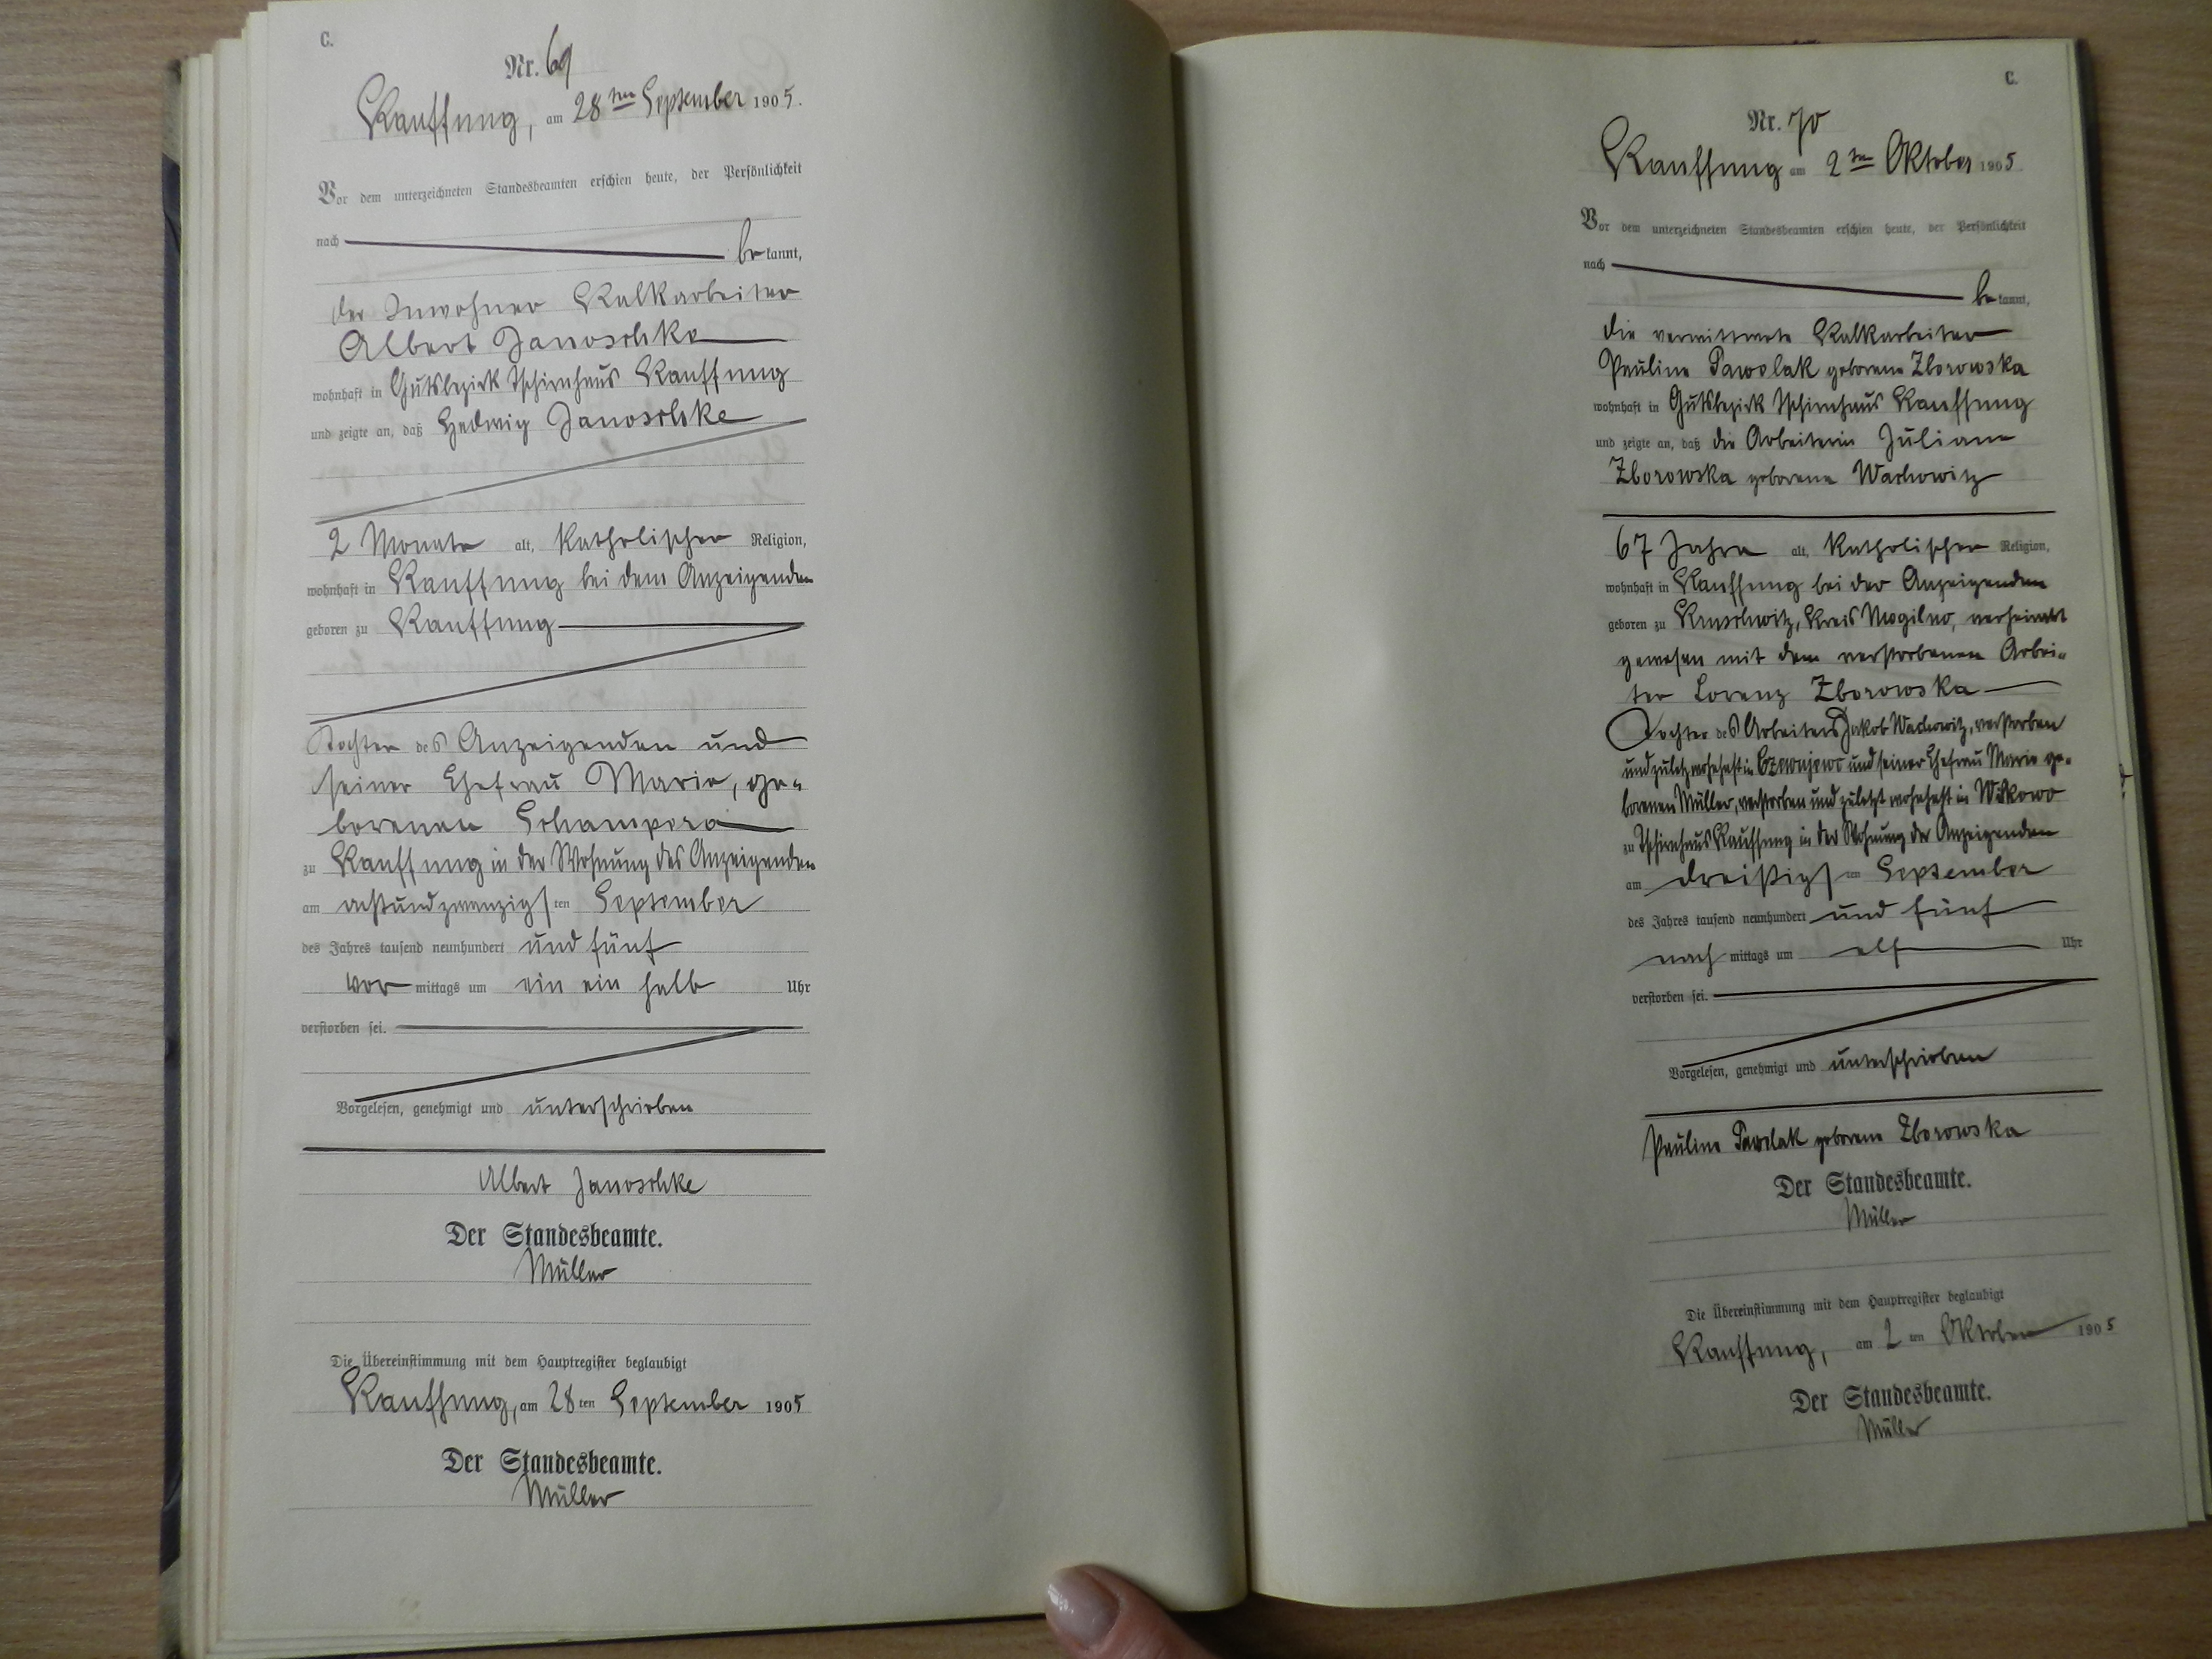 C.
Nr. 69
Kauffung, am 28ten September 1905.
Vor dem unterzeichneten Standesbeamten erschien heute, der Persönlichkeit
nach
bekannt,
der Inwohner Kalkarbeiter
Albert Janoschke
wohnhaft in Gutsbezirk Tschirnhaus Kauffung
und zeigte an, daß Hedwig Janoschke
2 Monate alt, katholischer Religion,
wohnhaft in Kauffung bei dem Anzeigenden
geboren zu Kauffung
Tochter des Anzeigenden und
seiner Ehefrau Marie, ge-
borenen Schampera
zu Kauffung in der Wohnung des Anzeigenden
am achtundzwanzigsten September
des Jahres tausend neunhundert und fünf
vormittags um ein ein halb Uhr
verstorben sei.
Vorgelesen, genehmigt und unterschrieben
Albert Janoschke
Der Standesbeamte.
Müller
Die Übereinstimmung mit dem Hauptregister beglaubigt
Kauffung, am 28ten September 1905
Der Standesbeamte.
Müller
C.
Nr. 70
Kauffung am 2ten Oktober 1905
Vor dem unterzeichneten Standesbeamten erschien heute, der Persönlichkeit
nach
bekannt,
die verwittwete Kalkarbeiter
Pauline Pawolak geborene Zborowska
wohnhaft in Gutsbezirk Tschirnhaus Kauffung
und zeigte an, daß die Arbeiterin Juliane
Zborowska geborene Wachowitz
67 Jahre alt, katholischer Religion,
wohnhaft in Kauffung bei der Anzeigenden
geboren zu Kruschwitz, Kreis Mogilno, verheiratet
gewesen mit dem verstorbenen Arbei-
ter Lorenz Zborowska
Tochter des Arbeiters Jakob Wachowitz, verstorben
und zuletzt wohnhaft in und seiner Ehefrau Marie ge-
borenen Müller, verstorben und zuletzt wohnhaft in Witkowo
zu Tschirnhaus Kauffung in der Wohnung der Anzeigenden
am dreißigsten September
des Jahres tausend neunhundert und fünf
nachmittags um elf Uhr
verstorben sei.
Vorgelesen, genehmigt und unterschrieben
Pauline Pawolak geborene Zborowska
Der Standesbeamte.
Müller
Die Übereinstimmung mit dem Hauptregister beglaubigt
Kauffung, am 2ten Oktober 1905
Der Standesbeamte.
Müller